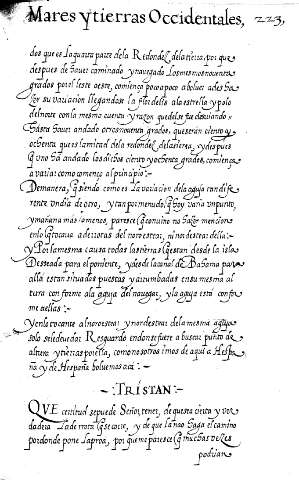 Mares y tierras Occidentales, 223,
dos que es la quarta parte dela Redondez dela tierra, por que
despues de hauer caminado y nauegado Los mesmos nouenta
grados por el leste oeste, comiença poco a poco a boluer a des ha
zer su variacion llegandose la flor delis ala estrella y polo
del norte con la mesma cuenta y razon que del se fue desuiando
hasta hauer andado otros nouenta grados, que seran ciento y
ochenta que es la mitad dela redondez dela tierra, y despues
q uno ha andado los dichos ciento y ochenta grados, comiença
a variar como començo al principio:~
Demanera, q siendo como es La variacion dela aguja tan dife
rente vn dia de otro, y tan por menudo q hoy varia vn punto,
y mañana mas o menos, parece q conuino no hazer mencion
en lo q toca a derrotas del noroestear, ni nordestear della:~
y Por la mesma causa todas las tierras q estan desde la isla
Desseada para el poniente, y desde la canal de Bahama para
alla estan situadas puestas y arrumbadas en su mesma al
tura con forme ala aguja del nauegar, y la aguja esta confor
me a ellas:~
Y en lo tocante al noroestear y nordestear dela mesma aguja
solo se le deue dar Resguardo en donde se fuere a buscar punto de
altura y tierras por ella, como nosotros imos de aqui a Hespa
ña y de Hespaña boluemos aca:~
~ TRISTAN:~
QVE certitud se puede Señor, tener, de questa cierta y ver
dadera La derrota q se corre, y de que la nao haga el camino
por donde pone La proa, por que me parece q muchas vezes
podrian